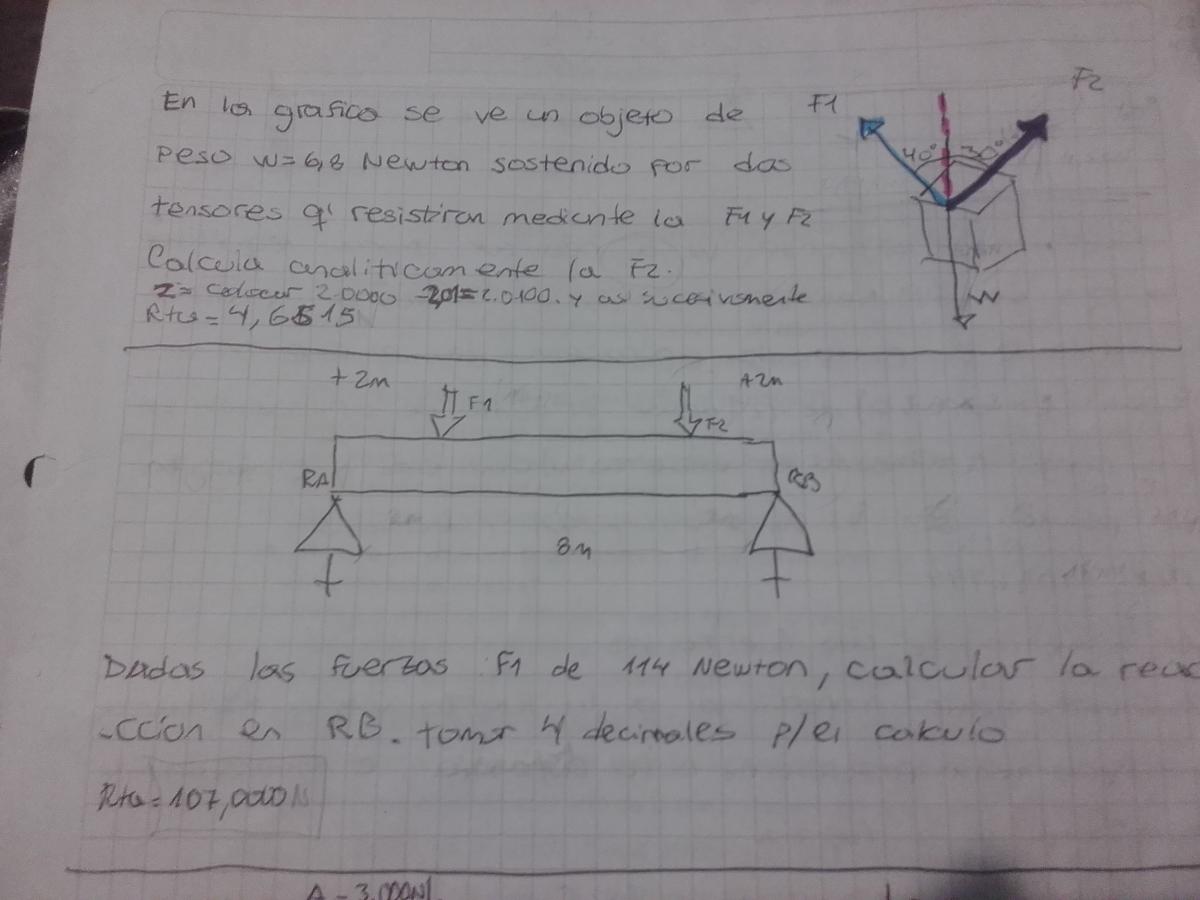 En los grafico se ve un objeto de
peso W=6,8 Newton sostenido por dos
tensores q' resistiran mediante la F1 y F2
Calcula analiticamente la F2.
2= colocar 2.0000 2,01=2.0100. y asi sucesivamente
Rta = 4,6515
F1
F2
40°
30°
W
+2m
F1
F2
+2m
RA
RB
8m
Dadas las fuerzas F1 de 114 Newton, calcular la reac
-cción en RB. tomar 4 decimales p/el calculo
Rta = 107,0000N